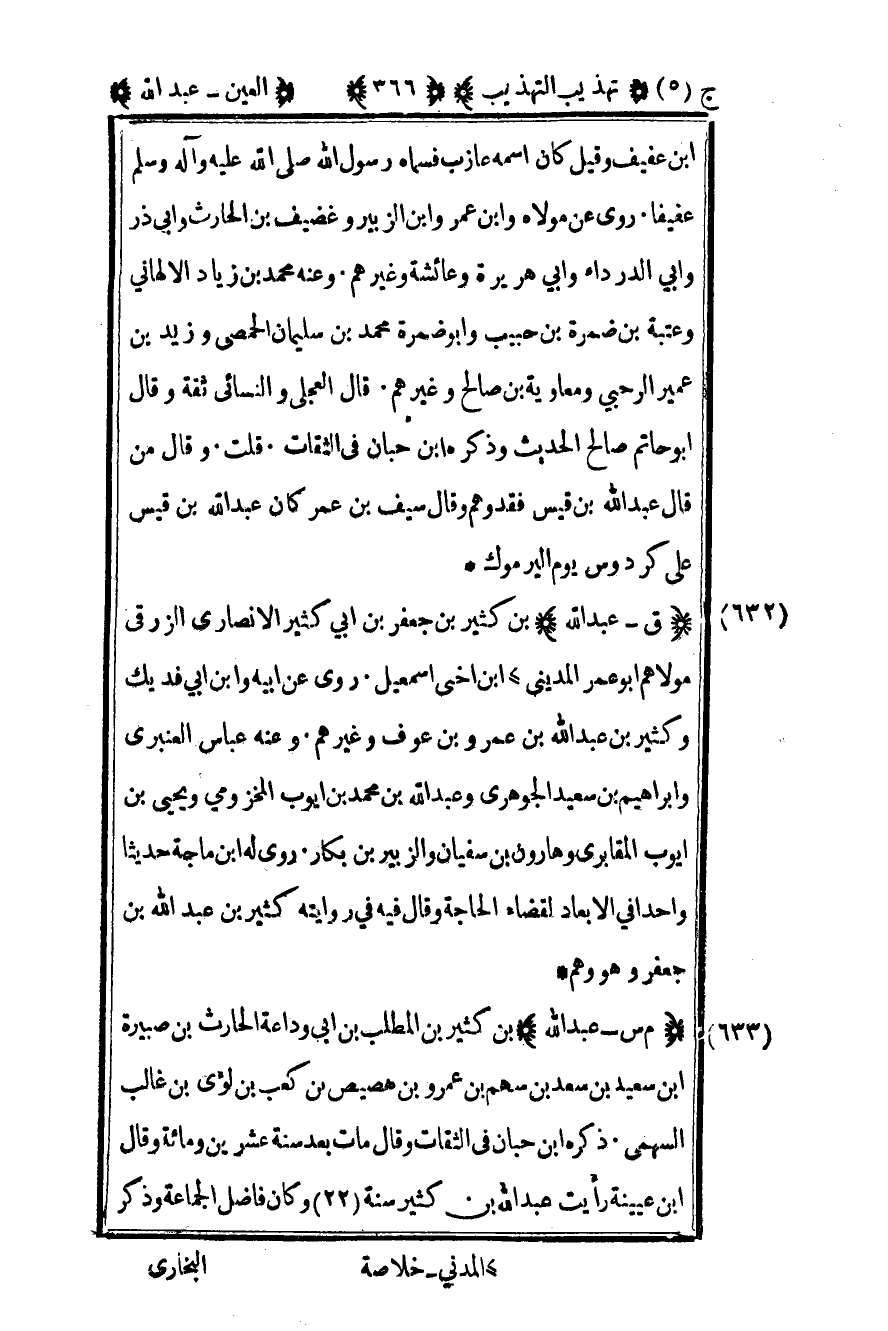 ج (٥) ﴿ تهذيب التهذيب ﴾ ﴿ ٣٦٦ ﴾ ﴿ العين ـ عبد الله ﴾
ابن عفيف وقيل كان اسمه عازب فسماه رسول الله صلى الله عليه وآله وسلم
عفيفا ٠ روى عن مولاه وابن عمر وابن الزبير و غضيف بن الحارث وابي ذر
وابي الدرداء وابي هريرة وعائشة وغيرهم ٠ وعنه محمد بن زياد الالهاني
وعتبة بن ضمرة بن حبيب وابوضمرة محمد بن سليمان الحمصي و زيد بن
عمير الرحبي ومعاوية بن صالح و غيرهم ٠ قال العجلى و النسائى ثقة و قال
ابوحاتم صالح الحديث وذكره ابن حبان فى الثقات ٠ قلت ٠ و قال من
قال عبدالله بن قيس فقدوهم وقال سيف بن عمر كان عبدالله بن قيس
على كردوس يوم اليرموك *
(٦٣٢) ﴿ ق ـ عبدالله ﴾ بن كثير بن جعفر بن ابي كثير الانصارى الزرقى
مولاهم ابوعمر المدينى ٨ ابن اخى اسمعيل ٠ روى عن ابيه وابن ابي فديك
وكثير بن عبدالله بن عمرو بن عوف وغيرهم ٠ و عنه عباس العنبرى
وابراهيم بن سعيد الجوهرى وعبدالله بن محمد بن ايوب المخزومي ويحيى بن
ايوب المقابرى وهارون بن سفيان والزبير بن بكار ٠ روى له ابن ماجة حديثا
واحدا في الابعاد لقضاء الحاجة وقال فيه في روايته كثير بن عبد الله بن
جعفر و هو وهم *
(٦٣٣) ﴿ م س ـ عبدالله ﴾ بن كثير بن المطلب بن ابي وداعة الحارث بن صبيرة
ابن سعيد بن سعد بن سهم بن عمرو بن هصيص بن كعب بن لؤى بن غالب
السهمى ٠ ذكره ابن حبان فى الثقات وقال مات بعد سنة عشرين ومائة وقال
ابن عيينة رأيت عبدالله بن كثير سنة (٢٢) وكان فاضل الجماعة وذكر
٨ المدني ـ خلاصة
البخارى